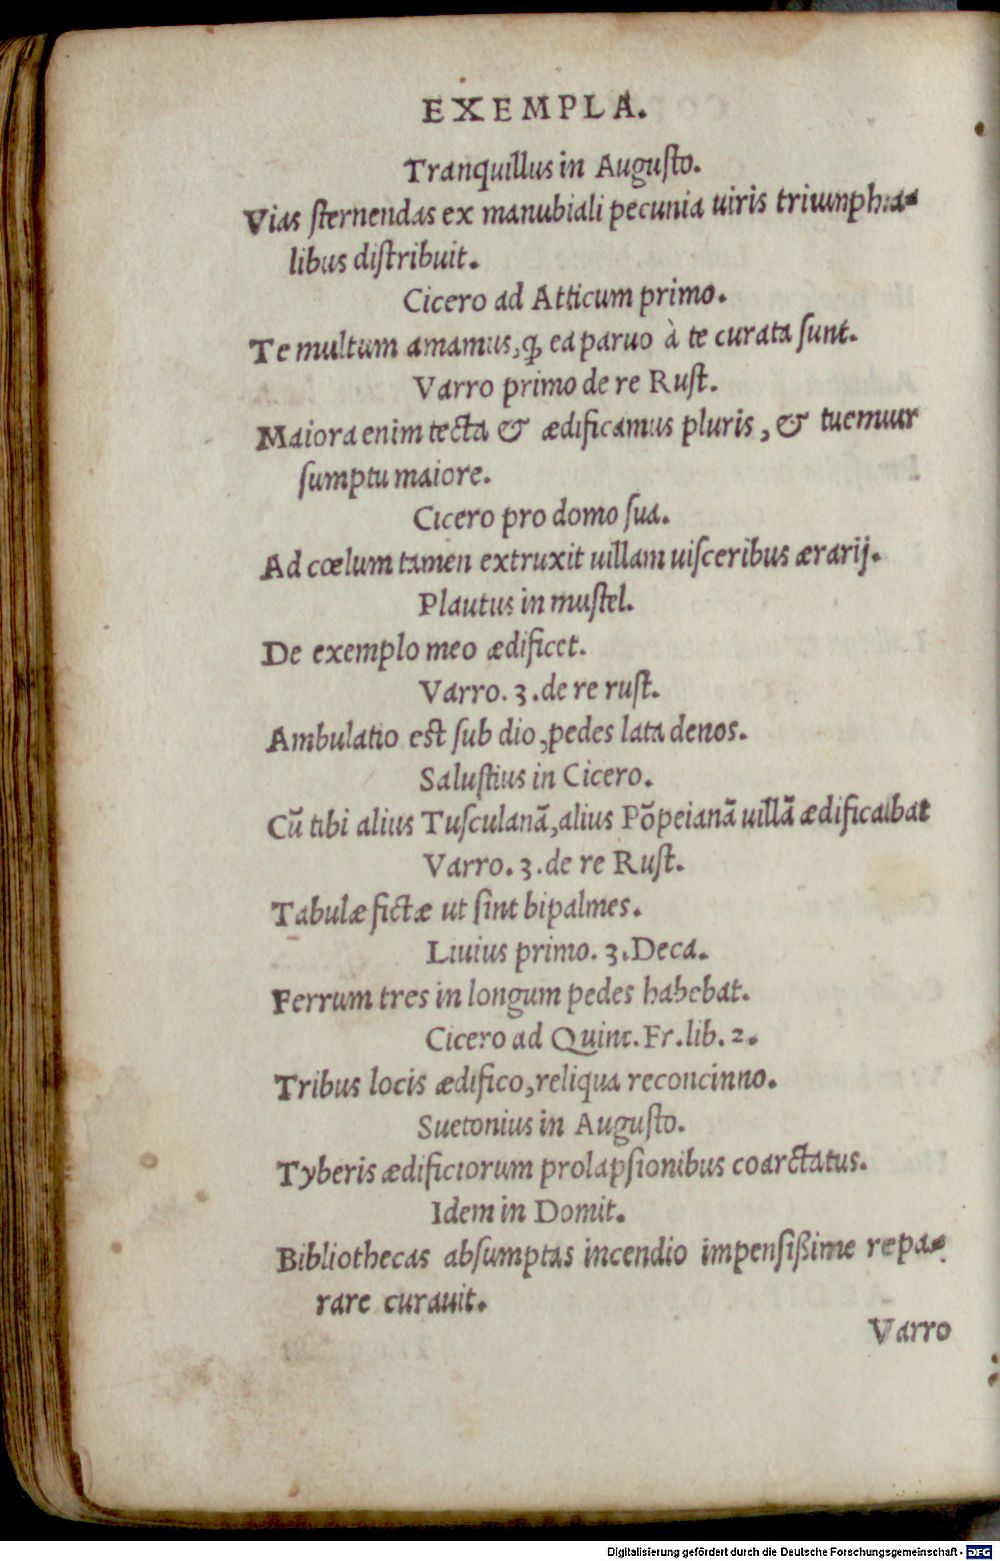 EXEMPLA.
Tranquillus in Augusto.
Vias sternendas ex manubiali pecunia uiris triumpha-
libus distribuit.
Cicero ad Atticum primo.
Te multum amamus, ꝙ ea paruo à te curata sunt.
Varro primo de re Rust.
Maiora enim tecta & ædificamus pluris, & tuemuur
sumptu maiore.
Cicero pro domo sua.
Ad cœlum tamen extruxit uillam uisceribus ærarij.
Plautus in mustel.
De exemplo meo ædificet.
Varro. 3. de re rust.
Ambulatio est sub dio, pedes lata denos.
Salustius in Cicero.
Cũ tibi alius Tusculanã, alius Põpeianã uillã ædificabat
Varro. 3. de re Rust.
Tabulæ fictæ ut sint bipalmes.
Liuius primo. 3. Deca.
Ferrum tres in longum pedes habebat.
Cicero ad Quint. Fr. lib. 2.
Tribus locis ædifico, reliqua reconcinno.
Suetonius in Augusto.
Tyberis ædificiorum prolapsionibus coarctatus.
Idem in Domit.
Bibliothecas absumptas incendio impensißime repa-
rare curauit.
Varro
Digitalisierung gefördert durch die Deutsche Forschungsgemeinschaft - DFG